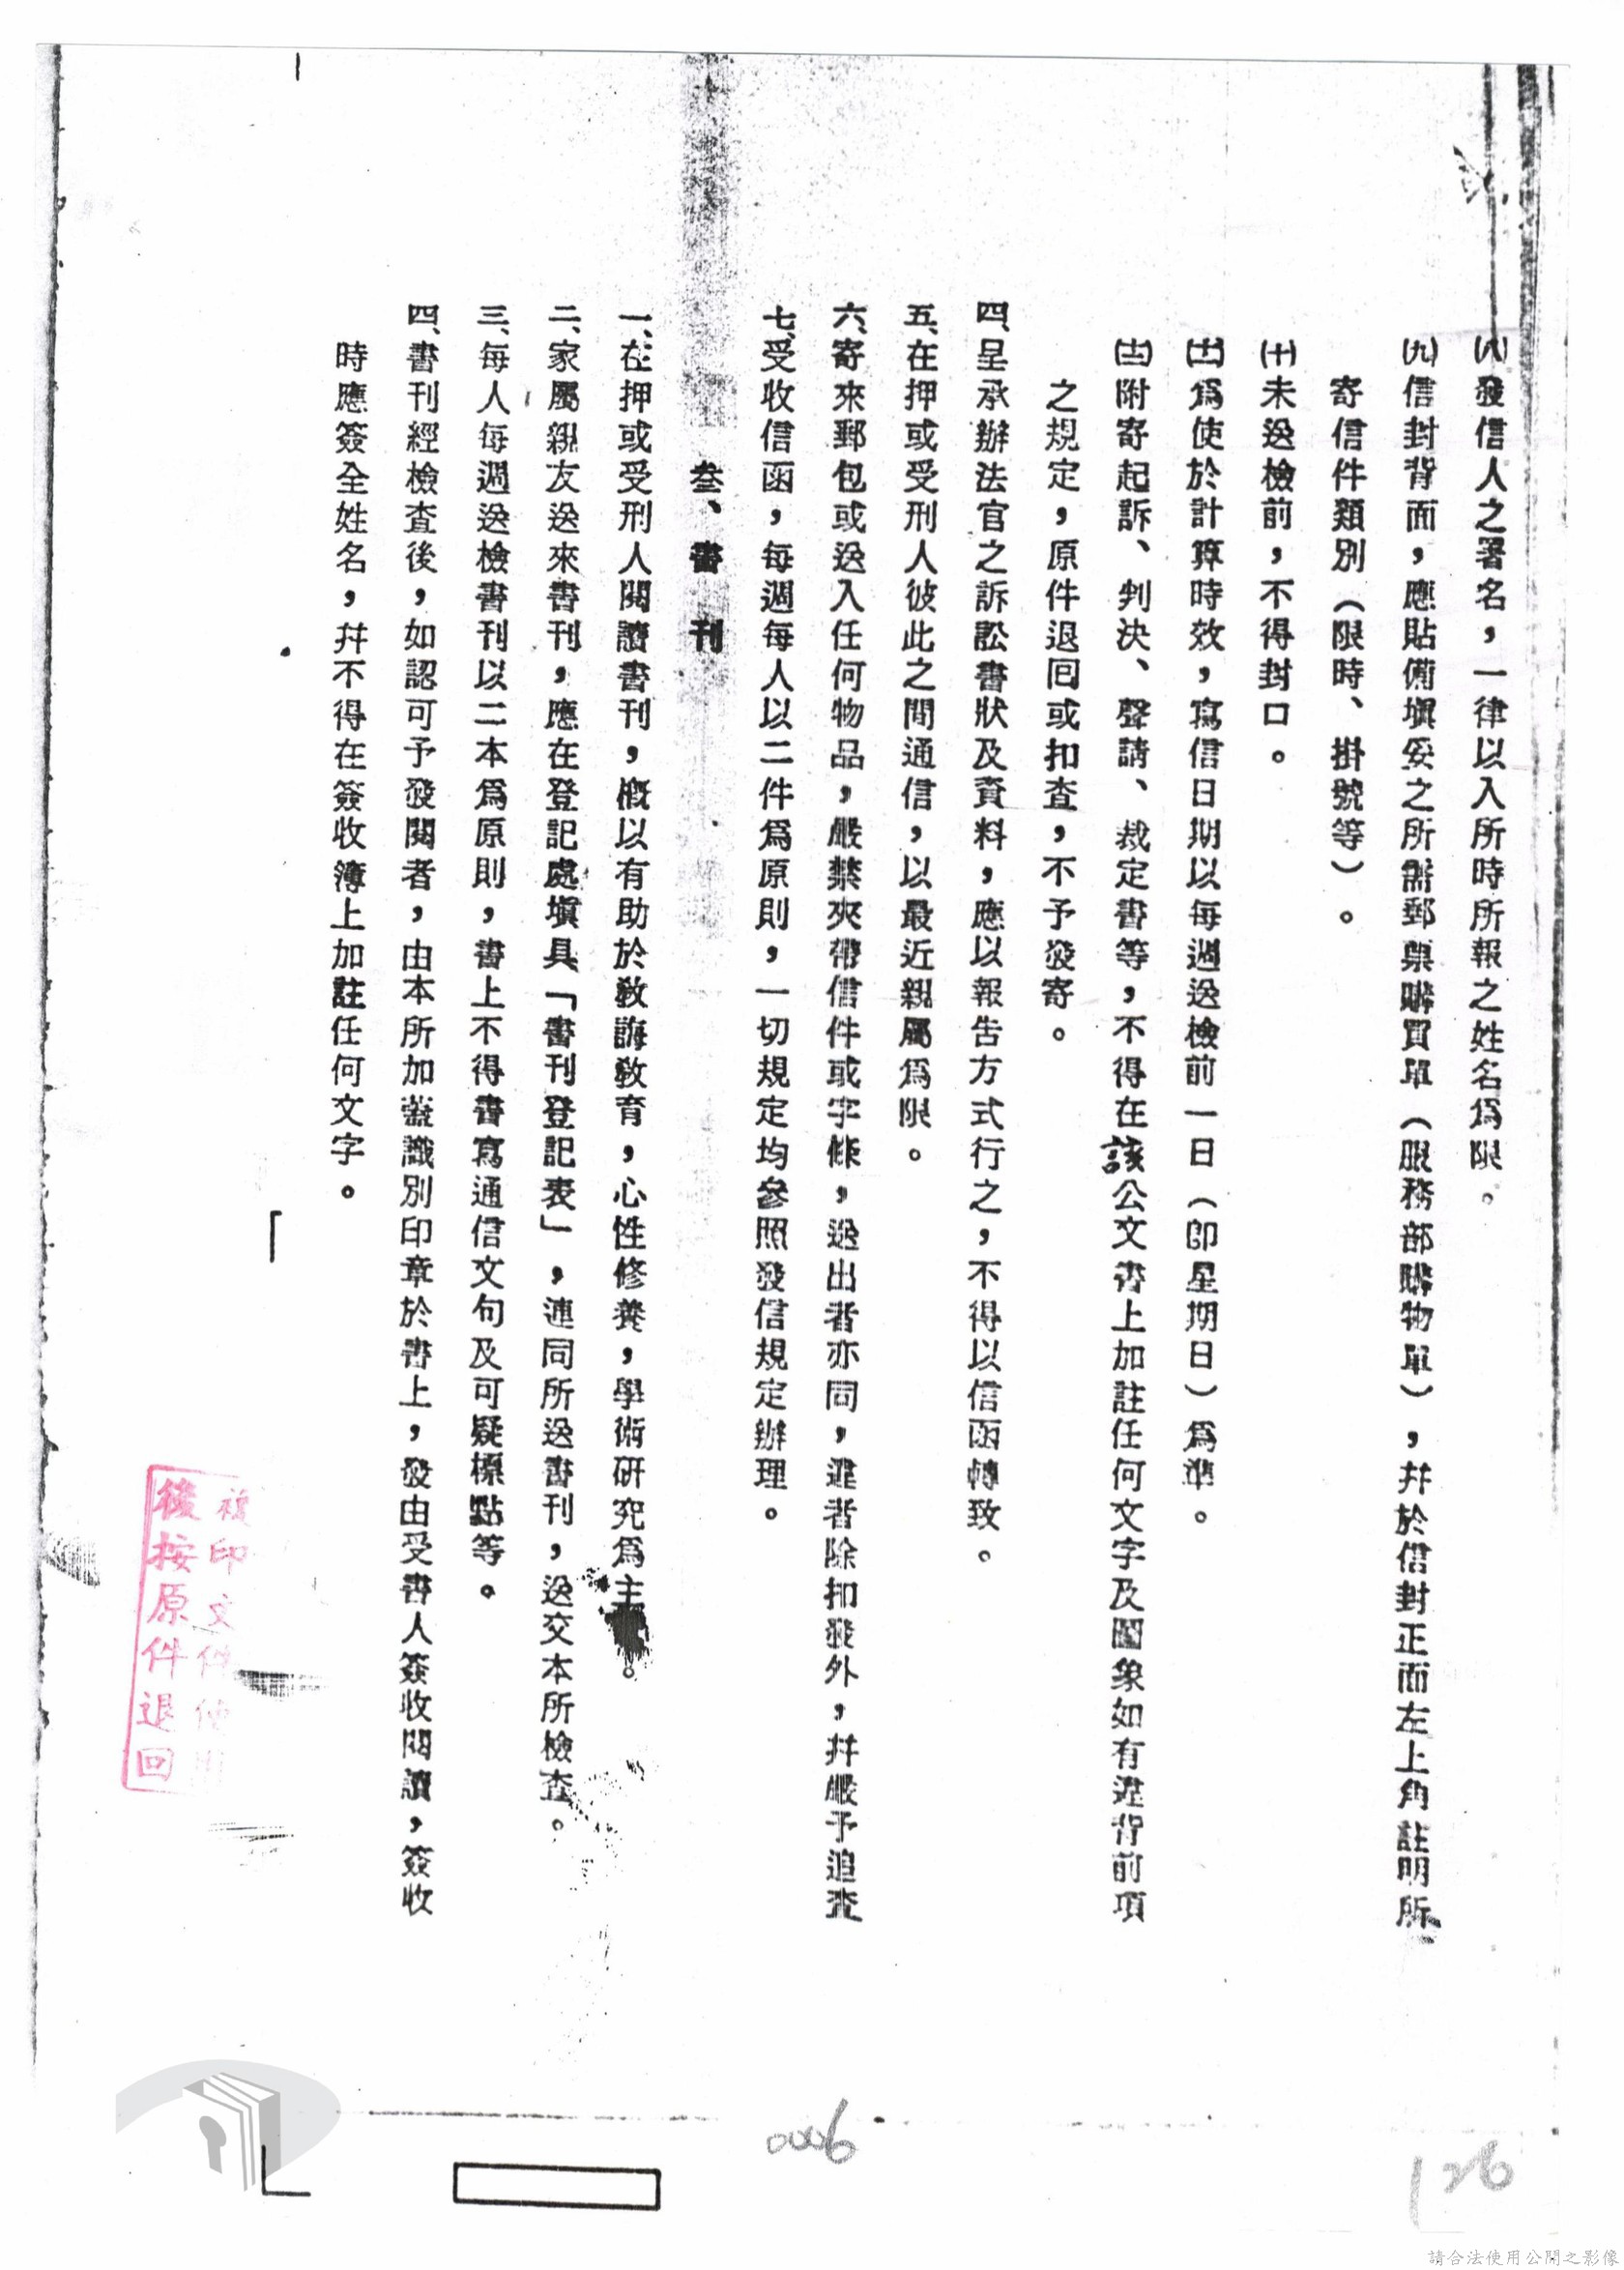 ㈧發信人之署名，一律以入所時所報之姓名爲限。
㈨信封背面，應貼備塡妥之所需郵票購買單（服務部購物單），幷於信封正面左上角註明所
寄信件類別（限時、掛號等）。
㈩未送檢前，不得封口。
(十一)爲使於計算時效，寫信日期以每週送檢前一日（卽星期日）爲準。
(十二)附寄起訴、判決、聲請、裁定書等，不得在該公文書上加註任何文字及圖象如有違背前項
之規定，原件退回或扣查，不予發寄。
四、呈承辦法官之訴訟書狀及資料，應以報告方式行之，不得以信函轉致。
五、在押或受刑人彼此之間通信，以最近親屬爲限。
六、寄來郵包或送入任何物品，嚴禁夾帶信件或字條，送出者亦同，違者除扣發外，幷嚴予追查
七、受收信函，每週每人以二件爲原則，一切規定均參照發信規定辦理。
叁、書刊
一、在押或受刑人閱讀書刊，槪以有助於敎誨敎育，心性修養，學術研究爲主。
二、家屬親友送來書刊，應在登記處塡具「書刊登記表」，連同所送書刊，送交本所檢查。
三、每人每週送檢書刊以二本爲原則，書上不得書寫通信文句及可疑標點等。
四、書刊經檢查後，如認可予發閱者，由本所加蓋識別印章於書上，發由受書人簽收閱讀，簽收
時應簽全姓名，幷不得在簽收簿上加註任何文字。
複印文件使用
後按原件退回
0006
126
請合法使用公開之影像